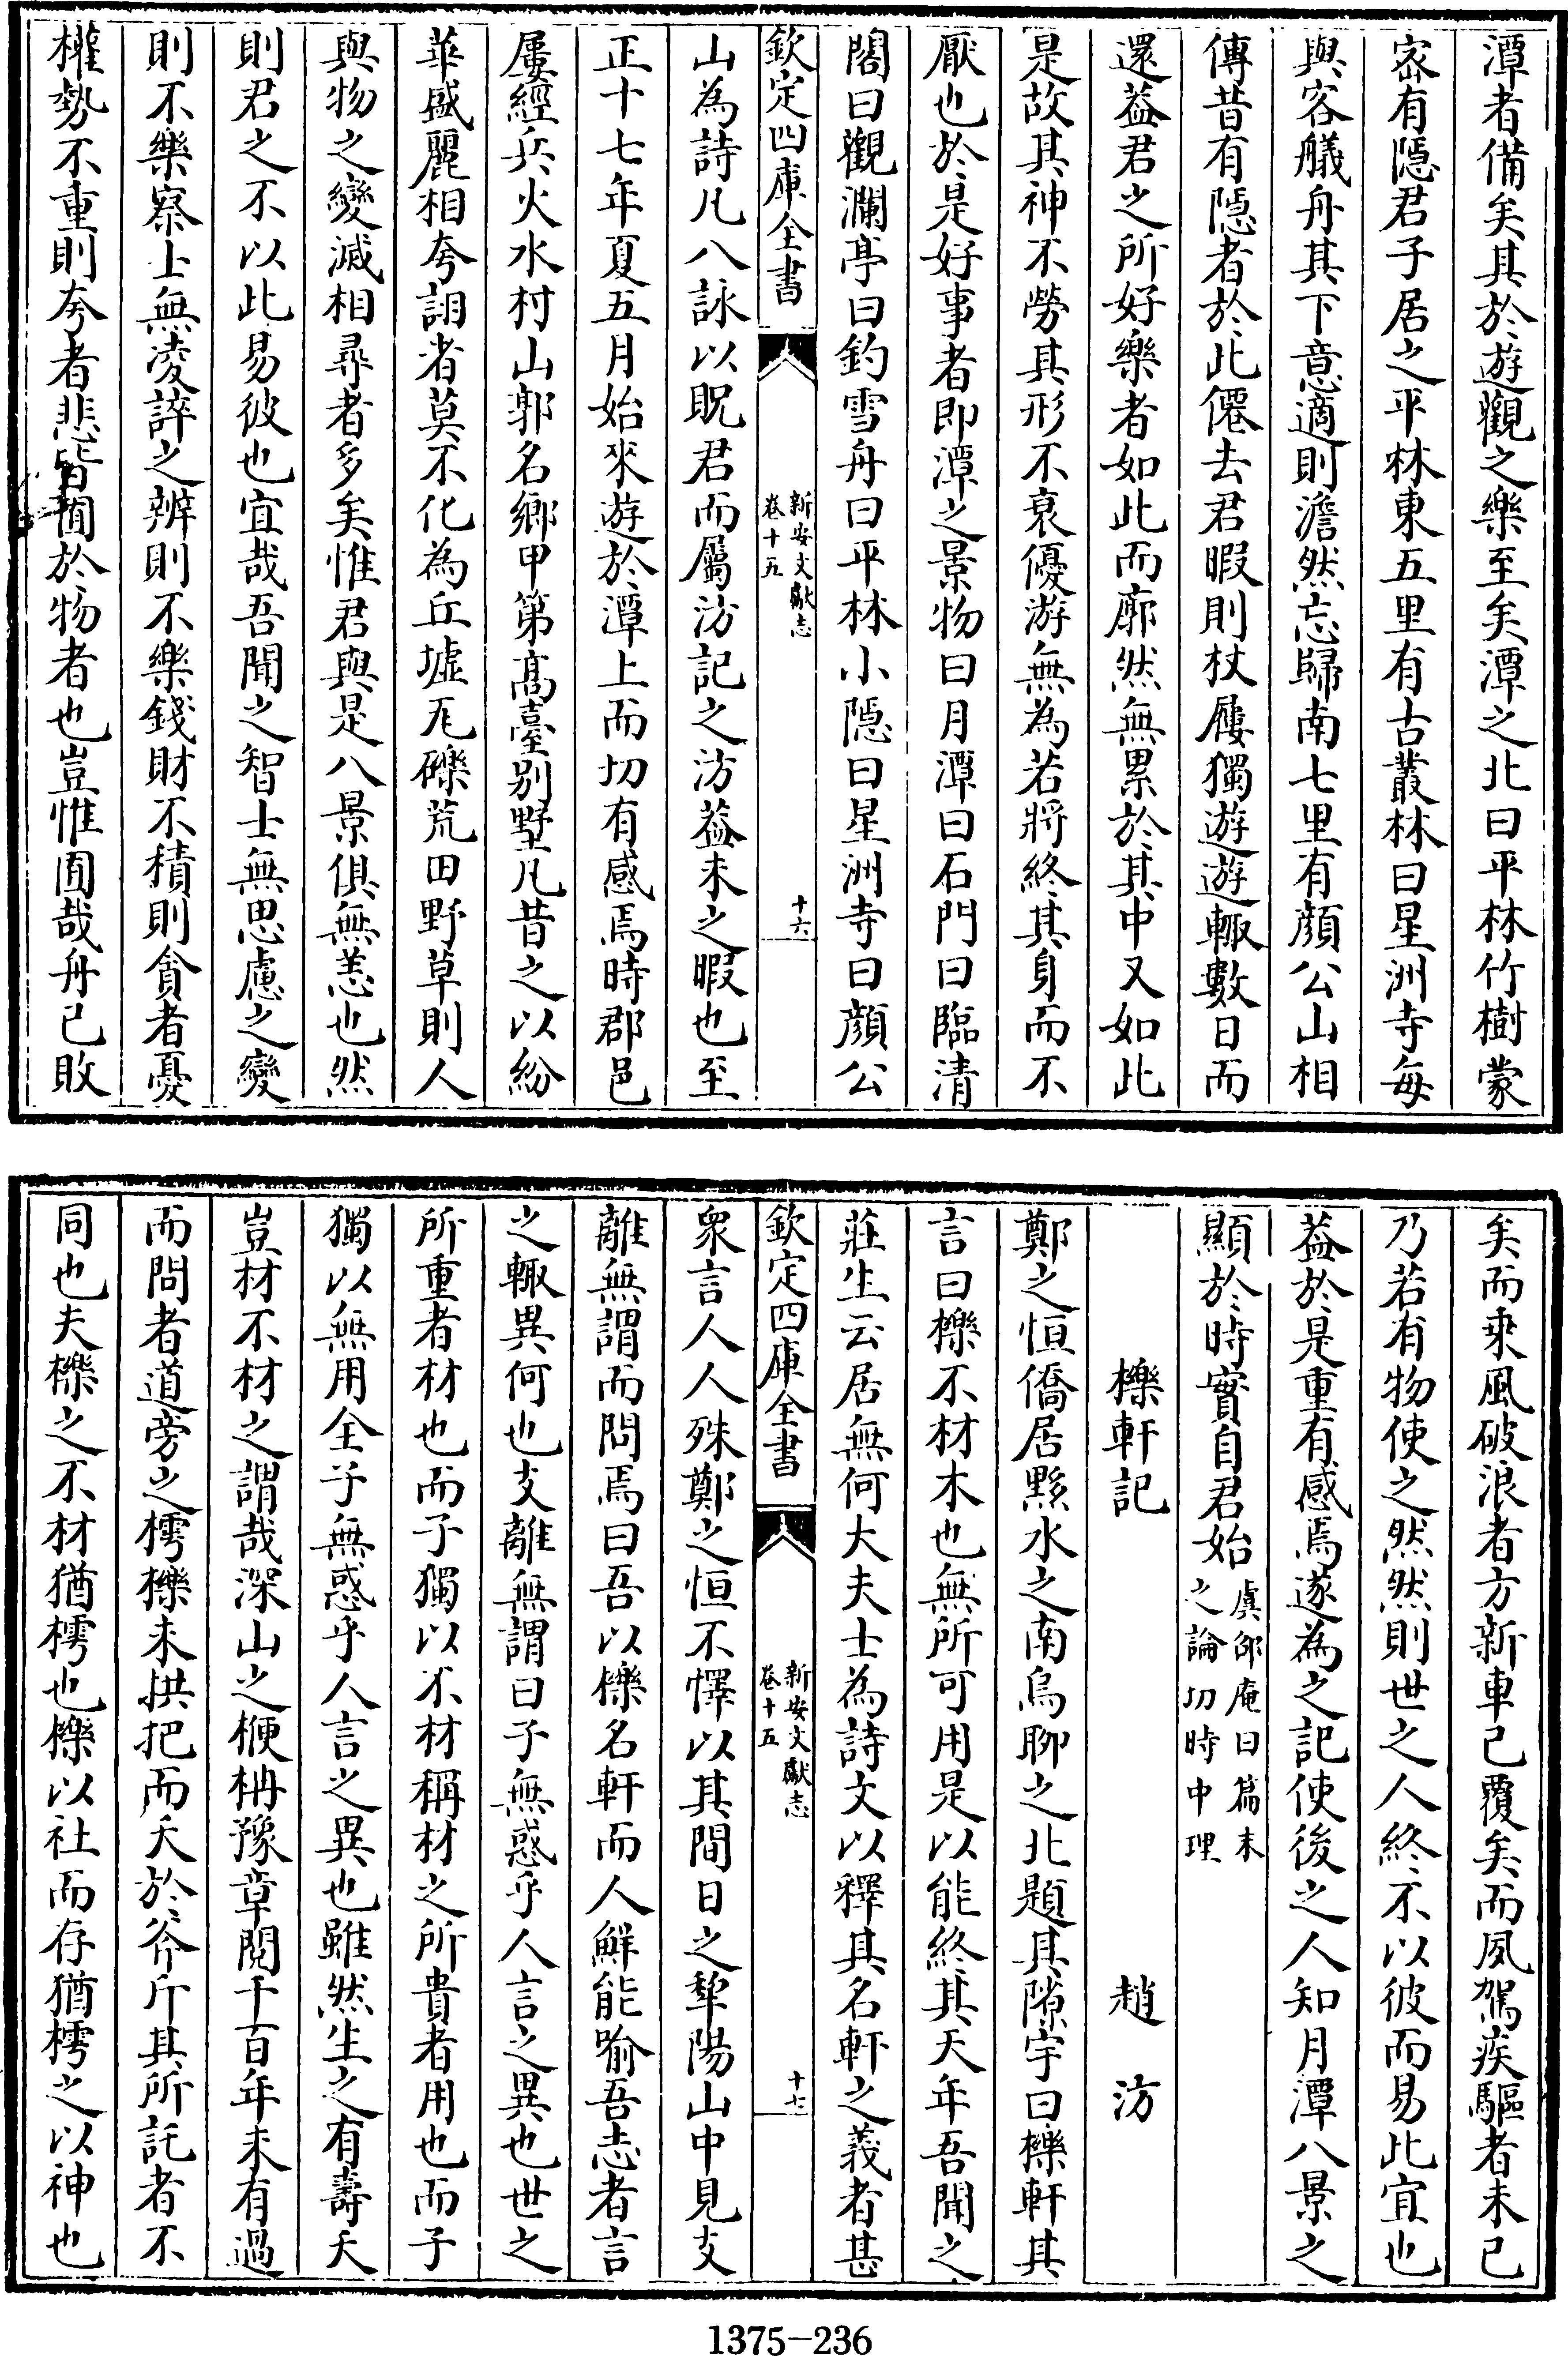 潭者備矣其於遊觀之樂至矣潭之北曰平林竹樹蒙
宻有隱君子居之平林東五里有古叢林曰星洲寺每
與客艤舟其下意適則澹然忘歸南七里有顔公山相
傳昔有隱者於此僊去君暇則杖屨獨遊遊輙數日而
還葢君之所好樂者如此而廓然無累於其中又如此
是故其神不勞其形不衰優游無為若將終其身而不
厭也於是好事者即潭之景物曰月潭曰石門曰臨清
閣曰觀瀾亭曰釣雪舟曰平林小隱曰星洲寺曰顔公
欽定四庫全書
新安文獻志
卷十五
十六
山為詩凡八詠以貺君而屬汸記之汸葢未之暇也至
正十七年夏五月始來遊於潭上而切有感焉時郡邑
屢經兵火水村山郭名鄉甲第髙臺别墅凡昔之以紛
華盛麗相夸詡者莫不化為丘墟瓦礫荒田野草則人
與物之變滅相尋者多矣惟君與是八景俱無恙也然
則君之不以此易彼也宜哉吾聞之智士無思慮之變
則不樂察士無凌誶之辨則不樂錢財不積則貪者憂
權勢不重則夸者悲皆囿於物者也豈惟囿哉舟已敗
矣而乘風破浪者方新車已覆矣而夙駕疾驅者未已
乃若有物使之然然則世之人終不以彼而易此宜也
葢於是重有感焉遂為之記使後之人知月潭八景之
顯於時實自君始
虞邵庵曰篇末
之論切時中理
櫟軒記　趙汸
鄭之恒僑居黟水之南烏聊之北題其隙宇曰櫟軒其
言曰櫟不材木也無所可用是以能終其天年吾聞之
莊生云居無何大夫士為詩文以釋其名軒之義者甚
欽定四庫全書
新安文獻志
卷十五
十七
衆言人人殊鄭之恒不懌以其間日之犂陽山中見支
離無謂而問焉曰吾以櫟名軒而人鮮能喻吾志者言
之輙異何也支離無謂曰子無惑乎人言之異也世之
所重者材也而子獨以不材稱材之所貴者用也而子
獨以無用全子無惑乎人言之異也雖然生之有壽夭
豈材不材之謂哉深山之楩柟豫章閱千百年未有過
而問者道旁之樗櫟未拱把而夭於斧斤其所託者不
同也夫櫟之不材猶樗也櫟以社而存猶樗之以神也
1375-236